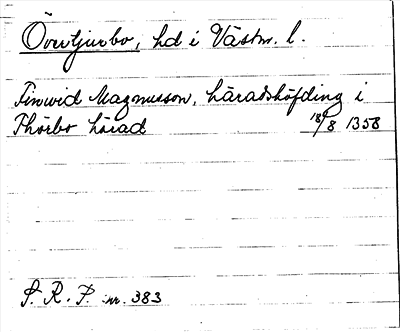 Övertjurbo, hd i Västm. l.
Finwid Magnusson, häradshöfding i
Thörbo härad 18/8 1358
S. R. P. nr. 383